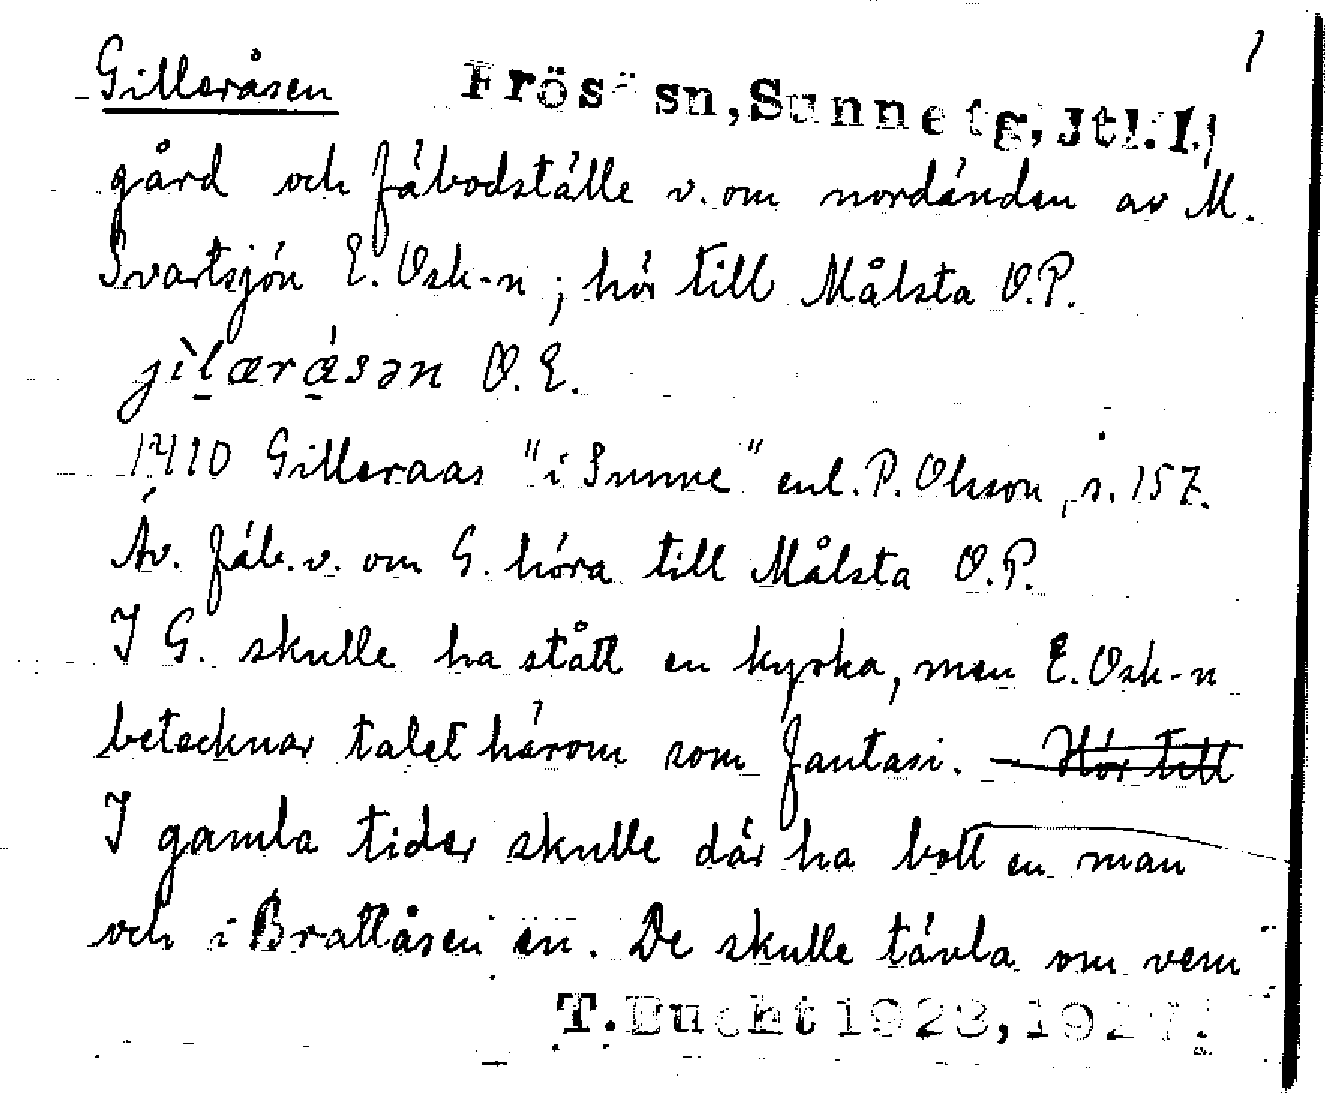 Gilleråsen Frösö sn, Sunne tg, Jtl. l. 1
gård och fäbodställe v. om nordänden av M.
Svartsjön E. Osk-n ; hör till Målsta O.P.
jìlæråsən O.E.
1410 Gilleraas "i Sunne" enl. P. Olsson, s. 157.
Äv. fäb. v. om G. höra till Målsta O.P.
I G. skulle ha stått en kyrka, men E. Osk-n
betecknar talet härom som fantasi. — Hör till
I gamla tider skulle där ha bott en man
och i Brattåsen en. De skulle tävla om vem
T. Bucht 1923, 1927.